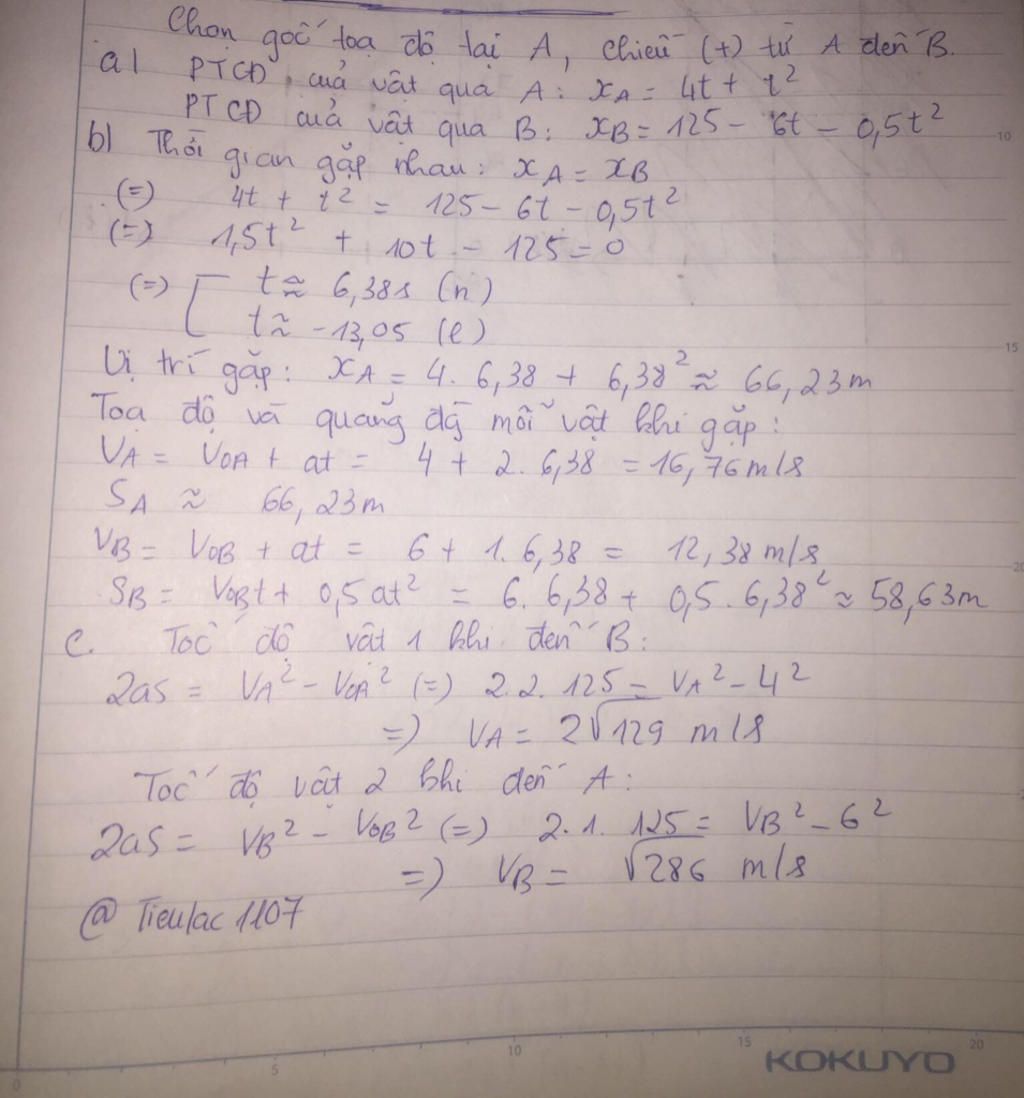 Chọn gốc toạ độ tại A, chiều (+) từ A đến B.
a) PTCĐ của vật qua A: xA = 4t + t²
PTCĐ của vật qua B: xB = 125 - 6t - 0,5t²
b) Thời gian gặp nhau: xA = xB
(=) 4t + t² = 125 - 6t - 0,5t²
(=) 1,5t² + 10t - 125 = 0
(=) [ t ≈ 6,38s (n)
t ≈ -13,05 (l)
Vị trí gặp: xA = 4. 6,38 + 6,38² ≈ 66,23m
Toạ độ và quãng đg mỗi vật khi gặp:
VA = VOA + at = 4 + 2. 6,38 = 16,76 m/s
SA ≈ 66,23m
VB = VOB + at = 6 + 1. 6,38 = 12,38 m/s
SB = VOBt + 0,5at² = 6. 6,38 + 0,5. 6,38² ≈ 58,63m
c. Tốc độ vật 1 khi đến B:
2as = VA² - VOA² (=) 2. 2. 125 = VA² - 4²
=) VA = 2√129 m/s
Tốc độ vật 2 khi đến A:
2as = VB² - VOB² (=) 2. 1. 125 = VB² - 6²
=) VB = √286 m/s
@ Tieulac1107
10
15
20
0 5 10 15 20
KOKUYO